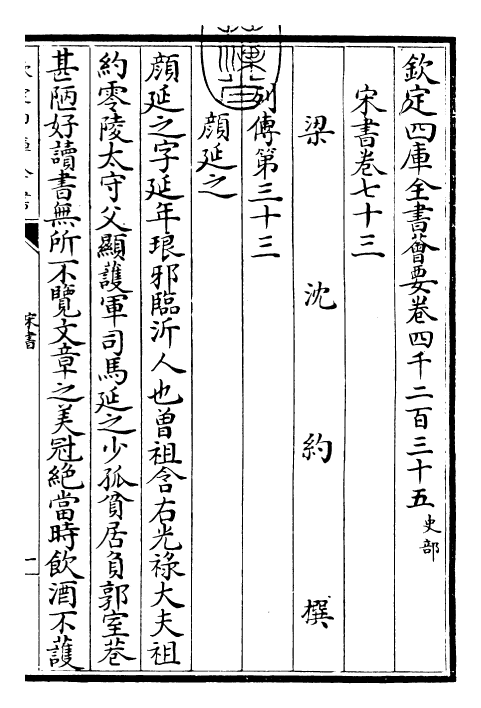 欽定四庫全書薈要卷四千二百三十五史部
宋書卷七十三
梁沈約撰
列傳第三十三
顔延之
顔延之字延年琅邪臨沂人也曽祖含右光祿大夫祖
約零陵太守父顯護軍司馬延之少孤貧居負郭室巷
甚陋好讀書無所不覽文章之美冠絶當時飲酒不護
宋書
一